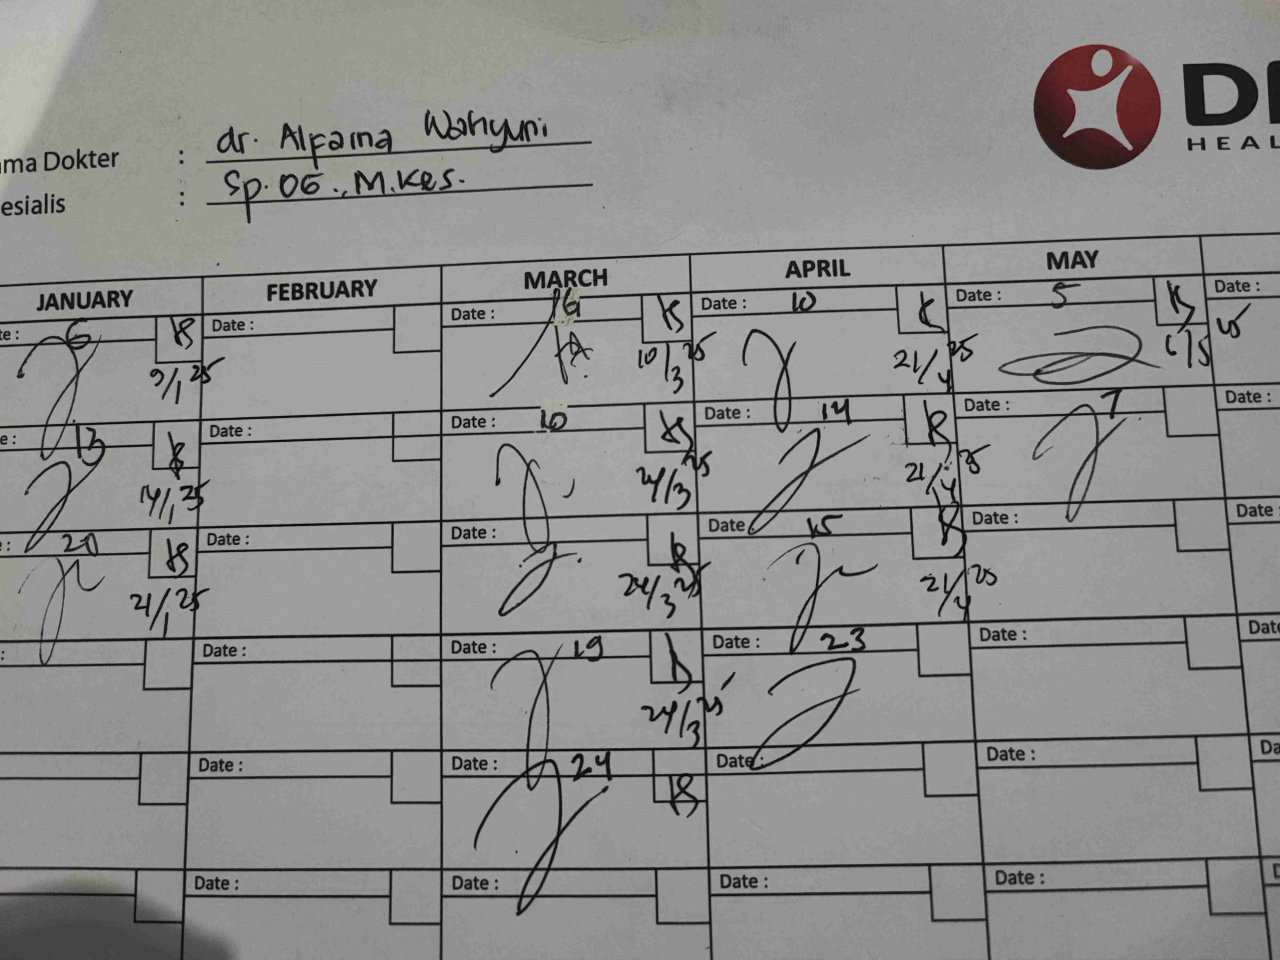 dr. Alfaina Wahyuni
ama Dokter :
Sp. OG., M.Kes.
esialis :
HEAL
JANUARY FEBRUARY MARCH APRIL MAY
te: 6 Date : Date : Date : 10 Date : 5 Date :
9/1 25 10/3 25 21/4 25 6/5 25
e: 13 Date : Date : 10 Date : 14 Date : 7 Date :
14/1 25 24/3 25 21/4 25
: 20 Date : Date : Date 15 Date : Date :
21/1 25 24/3 25 21/4 25
: Date : Date : 19 Date : 23 Date : Date
24/3 25
Date : Date : 24 Date : Date : Da
Date : Date : Date : Date : D